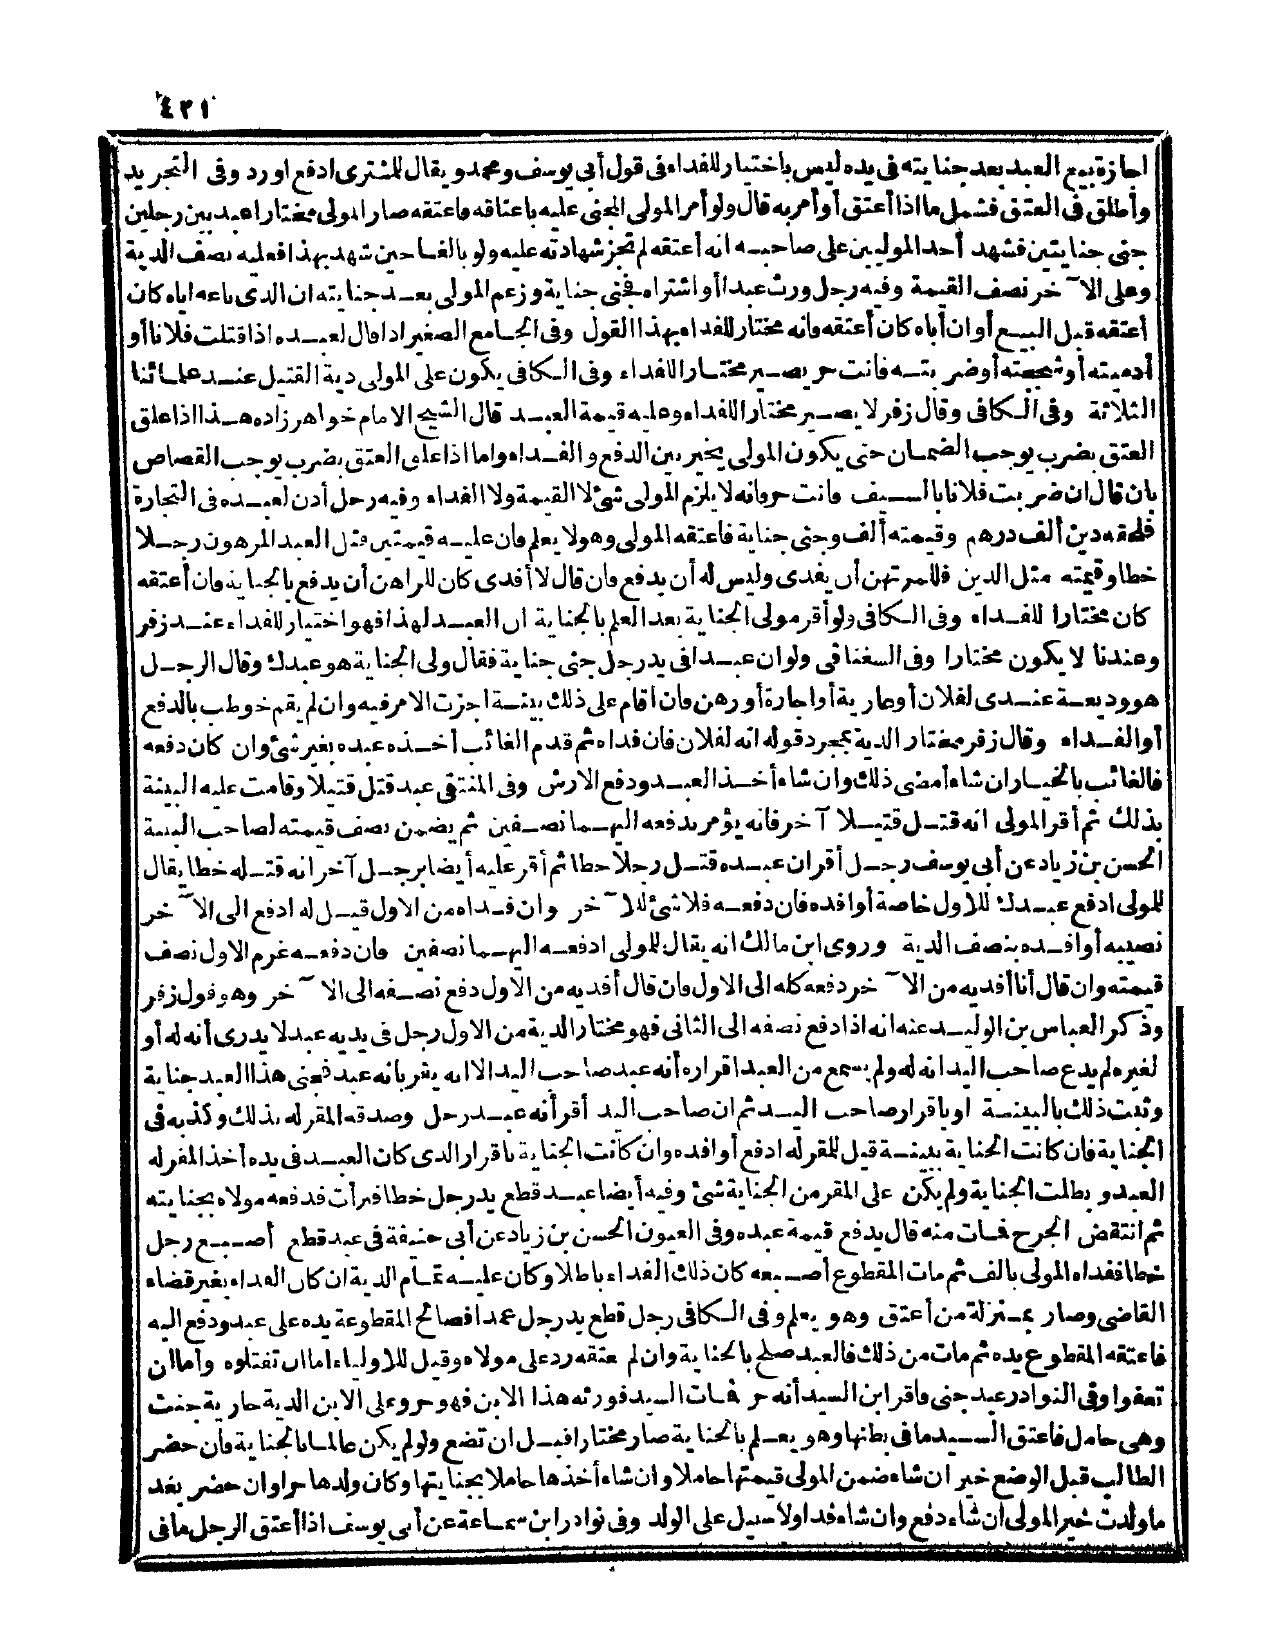 ٤٢١
اجازة بيع العبد بعد جنايته فى يده ليس باختيار للفداء فى قول أبى يوسف ومحمد ويقال للمشترى ادفع اورد وفى التجريد
وأطلق فى العتق فشمل ما اذا أعتق أو أمر به قال ولو أمر المولى المجنى عليه باعتاقه فاعتقه صار المولى مختارا عبد بين رجلين
جنى جنايتين فشهد أحد الموليين على صاحبه انه أعتقه لم تجز شهادته عليه ولو بالغا حين شهد بهذا فعليه نصف الدية
وعلى الآخر نصف القيمة وفيه رجل ورث عبدا أو اشتراه فجنى جناية وزعم المولى بعد جنايته ان الذى باعه اياه كان
أعتقه قبل البيع أو ان أباه كان أعتقه فانه مختار للفداء بهذا القول وفى الجامع الصغير اذا قال لعبده اذا قتلت فلانا أو
أدميته أو شججته أو ضربته فانت حر يصير مختارا للفداء وفى الكافى يكون على المولى دية القتيل عند علمائنا
الثلاثة وفى الكافى وقال زفر لا يصير مختارا للفداء وعليه قيمة العبد قال الشيخ الامام خواهر زاده هذا اذا علق
العتق بضرب يوجب الضمان حتى يكون المولى يخير بين الدفع والفداء واما اذا علق العتق بضرب يوجب القصاص
بان قال ان ضربت فلانا بالسيف فانت حر فانه لا يلزم المولى شئ لا القيمة ولا الفداء وفيه رجل أذن لعبده فى التجارة
فلحقه دين ألف درهم وقيمته ألف وجنى جناية فاعتقه المولى وهو لا يعلم فان عليه قيمتين قتل العبد المرهون رجلا
خطا وقيمته مثل الدين فللمرتهن أن يفدى وليس له أن يدفع فان قال لا أفدى كان للراهن أن يدفع بالجناية فان أعتقه
كان مختارا للفداء وفى الكافى ولو أقر مولى الجناية بعد العلم بالجناية ان العبد لهذا فهو اختيار للفداء عند زفر
وعندنا لا يكون مختارا وفى السغناقى ولو ان عبدا فى يد رجل جنى جناية فقال ولى الجناية هو عبدك وقال الرجل
هو وديعة عندى لفلان أو عارية أو اجارة أو رهن فان أقام على ذلك بينة اجزت الامر فيه وان لم يقم خوطب بالدفع
أو الفداء وقال زفر مختار الدية بمجرد قوله انه لفلان فان فداه ثم قدم الغائب أخذ عبده بغير شئ وان كان دفعه
فالغائب بالخيار ان شاء أمضى ذلك وان شاء أخذ العبد ودفع الارش وفى المنتقى عبد قتل قتيلا وقامت عليه البينة
بذلك ثم أقر المولى انه قتل قتيلا آخر فانه يؤمر بدفعه اليهما نصفين ثم يضمن نصف قيمته لصاحب البينة
الحسن بن زياد عن أبى يوسف رجل أقر ان عبده قتل رجلا خطا ثم أقر عليه أيضا برجل آخر انه قتله خطا يقال
للمولى ادفع عبدك للاول خاصة أو افده فان دفعه فلا شئ للآخر وان فداه من الاول قيل له ادفع الى الآخر
نصيبه أو افده بنصف الدية وروى ابن مالك انه يقال للمولى ادفعه اليهما نصفين فان دفعه غرم الاول نصف
قيمته وان قال أنا أفديه من الآخر دفعه كله الى الاول فان قال أفديه من الاول دفع نصفه الى الآخر وهو قول زفر
وذكر العباس بن الوليد عنه انه اذا دفع نصفه الى الثانى فهو مختار الدية من الاول رجل فى يديه عبد لا يدرى أنه له أو
لغيره لم يدع صاحب اليد انه له ولم يسمع من العبد اقراره أنه عبد صاحب اليد الا انه يقر بانه عبد فجنى هذا العبد جناية
وثبت ذلك بالبينة او باقرار صاحب اليد ثم ان صاحب اليد أقر أنه عبد رجل وصدقه المقر له بذلك وكذبه فى
الجناية فان كانت الجناية ببينة قيل للمقر له ادفع أو افده وان كانت الجناية باقرار الذى كان العبد فى يده أخذ المقر له
العبد وبطلت الجناية ولم يكن على المقر من الجناية شئ وفيه أيضا عبد قطع يد رجل خطا فبرأت فدفعه مولاه بجنايته
ثم انتقض الجرح فمات منه قال يدفع قيمة عبده وفى العيون الحسن بن زياد عن أبى حنيفة فى عبد قطع أصبع رجل
خطا ففداه المولى بالف ثم مات المقطوع أصبعه كان ذلك الفداء باطلا وكان عليه تمام الدية ان كان الفداء بغير قضاء
القاضى وصار بمنزلة من أعتق وهو يعلم وفى الكافى رجل قطع يد رجل عمدا فصالح المقطوعة يده على عبد ودفع اليه
فاعتقه المقطوع يده ثم مات من ذلك فالعبد صلح بالجناية وان لم يعتقه رد على مولاه وقيل للاولياء اما ان تقتلوه وأما ان
تعفوا وفى النوادر عبد جنى فاقر ابن السيد أنه حر فمات السيد فورثه هذا الابن فهو حر وعلى الابن الدية جارية جنت
وهى حامل فاعتق السيد ما فى بطنها وهو يعلم بالجناية صار مختارا قبل ان تضع ولو لم يكن عالما بالجناية فان حضر
الطالب قبل الوضع خير ان شاء ضمن المولى قيمتها حاملا وان شاء أخذها حاملا بجنايتها وكان ولدها حرا وان حضر بعد
ما ولدت خير المولى ان شاء دفع وان شاء فدا ولا سبيل على الولد وفى نوادر ابن سماعة عن أبى يوسف اذا أعتق الرجل ما فى